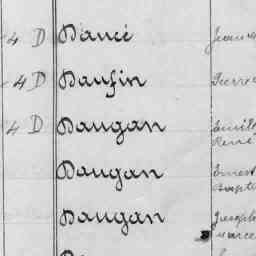 4 D Daucé Jean
4 D Daufin Pierre
4 D Daugan Émile
René
Daugan Ernest
Baptis
Daugan Joseph
Marce